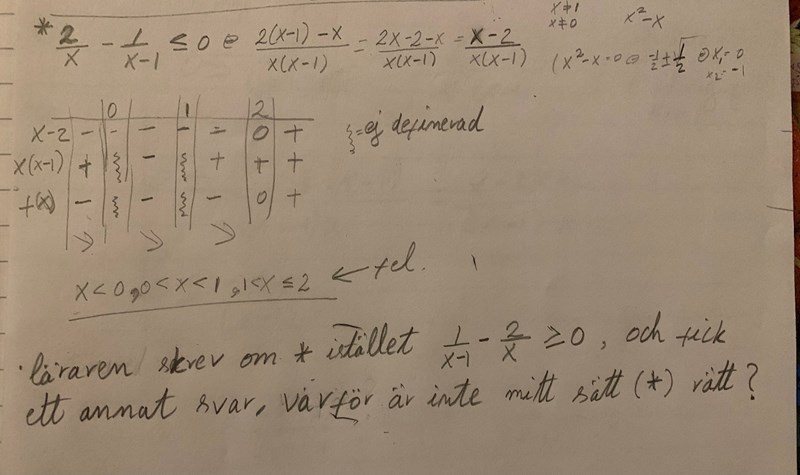 x≠1
x≠0
x²-x
* 2/x - 1/(x-1) ≤ 0 ⊖ (2(x-1)-x)/(x(x-1)) = (2x-2-x)/(x(x-1)) = (x-2)/(x(x-1))
(x²-x=0 ⊖ ½±√½ ⊖ x₁=0
x₂=-1
0 1 2
x-2 - - - - - 0 +
x(x-1) + ⸾ - ⸾ + + +
f(x) - ⸾ - ⸾ - 0 +
⸾=ej definerad
x<0, 0<x<1, 1<x≤2 ← fel.
• läraren skrev om * istället 1/(x-1) - 2/x ≥ 0, och fick
ett annat svar, varför är inte mitt sätt (*) rätt?